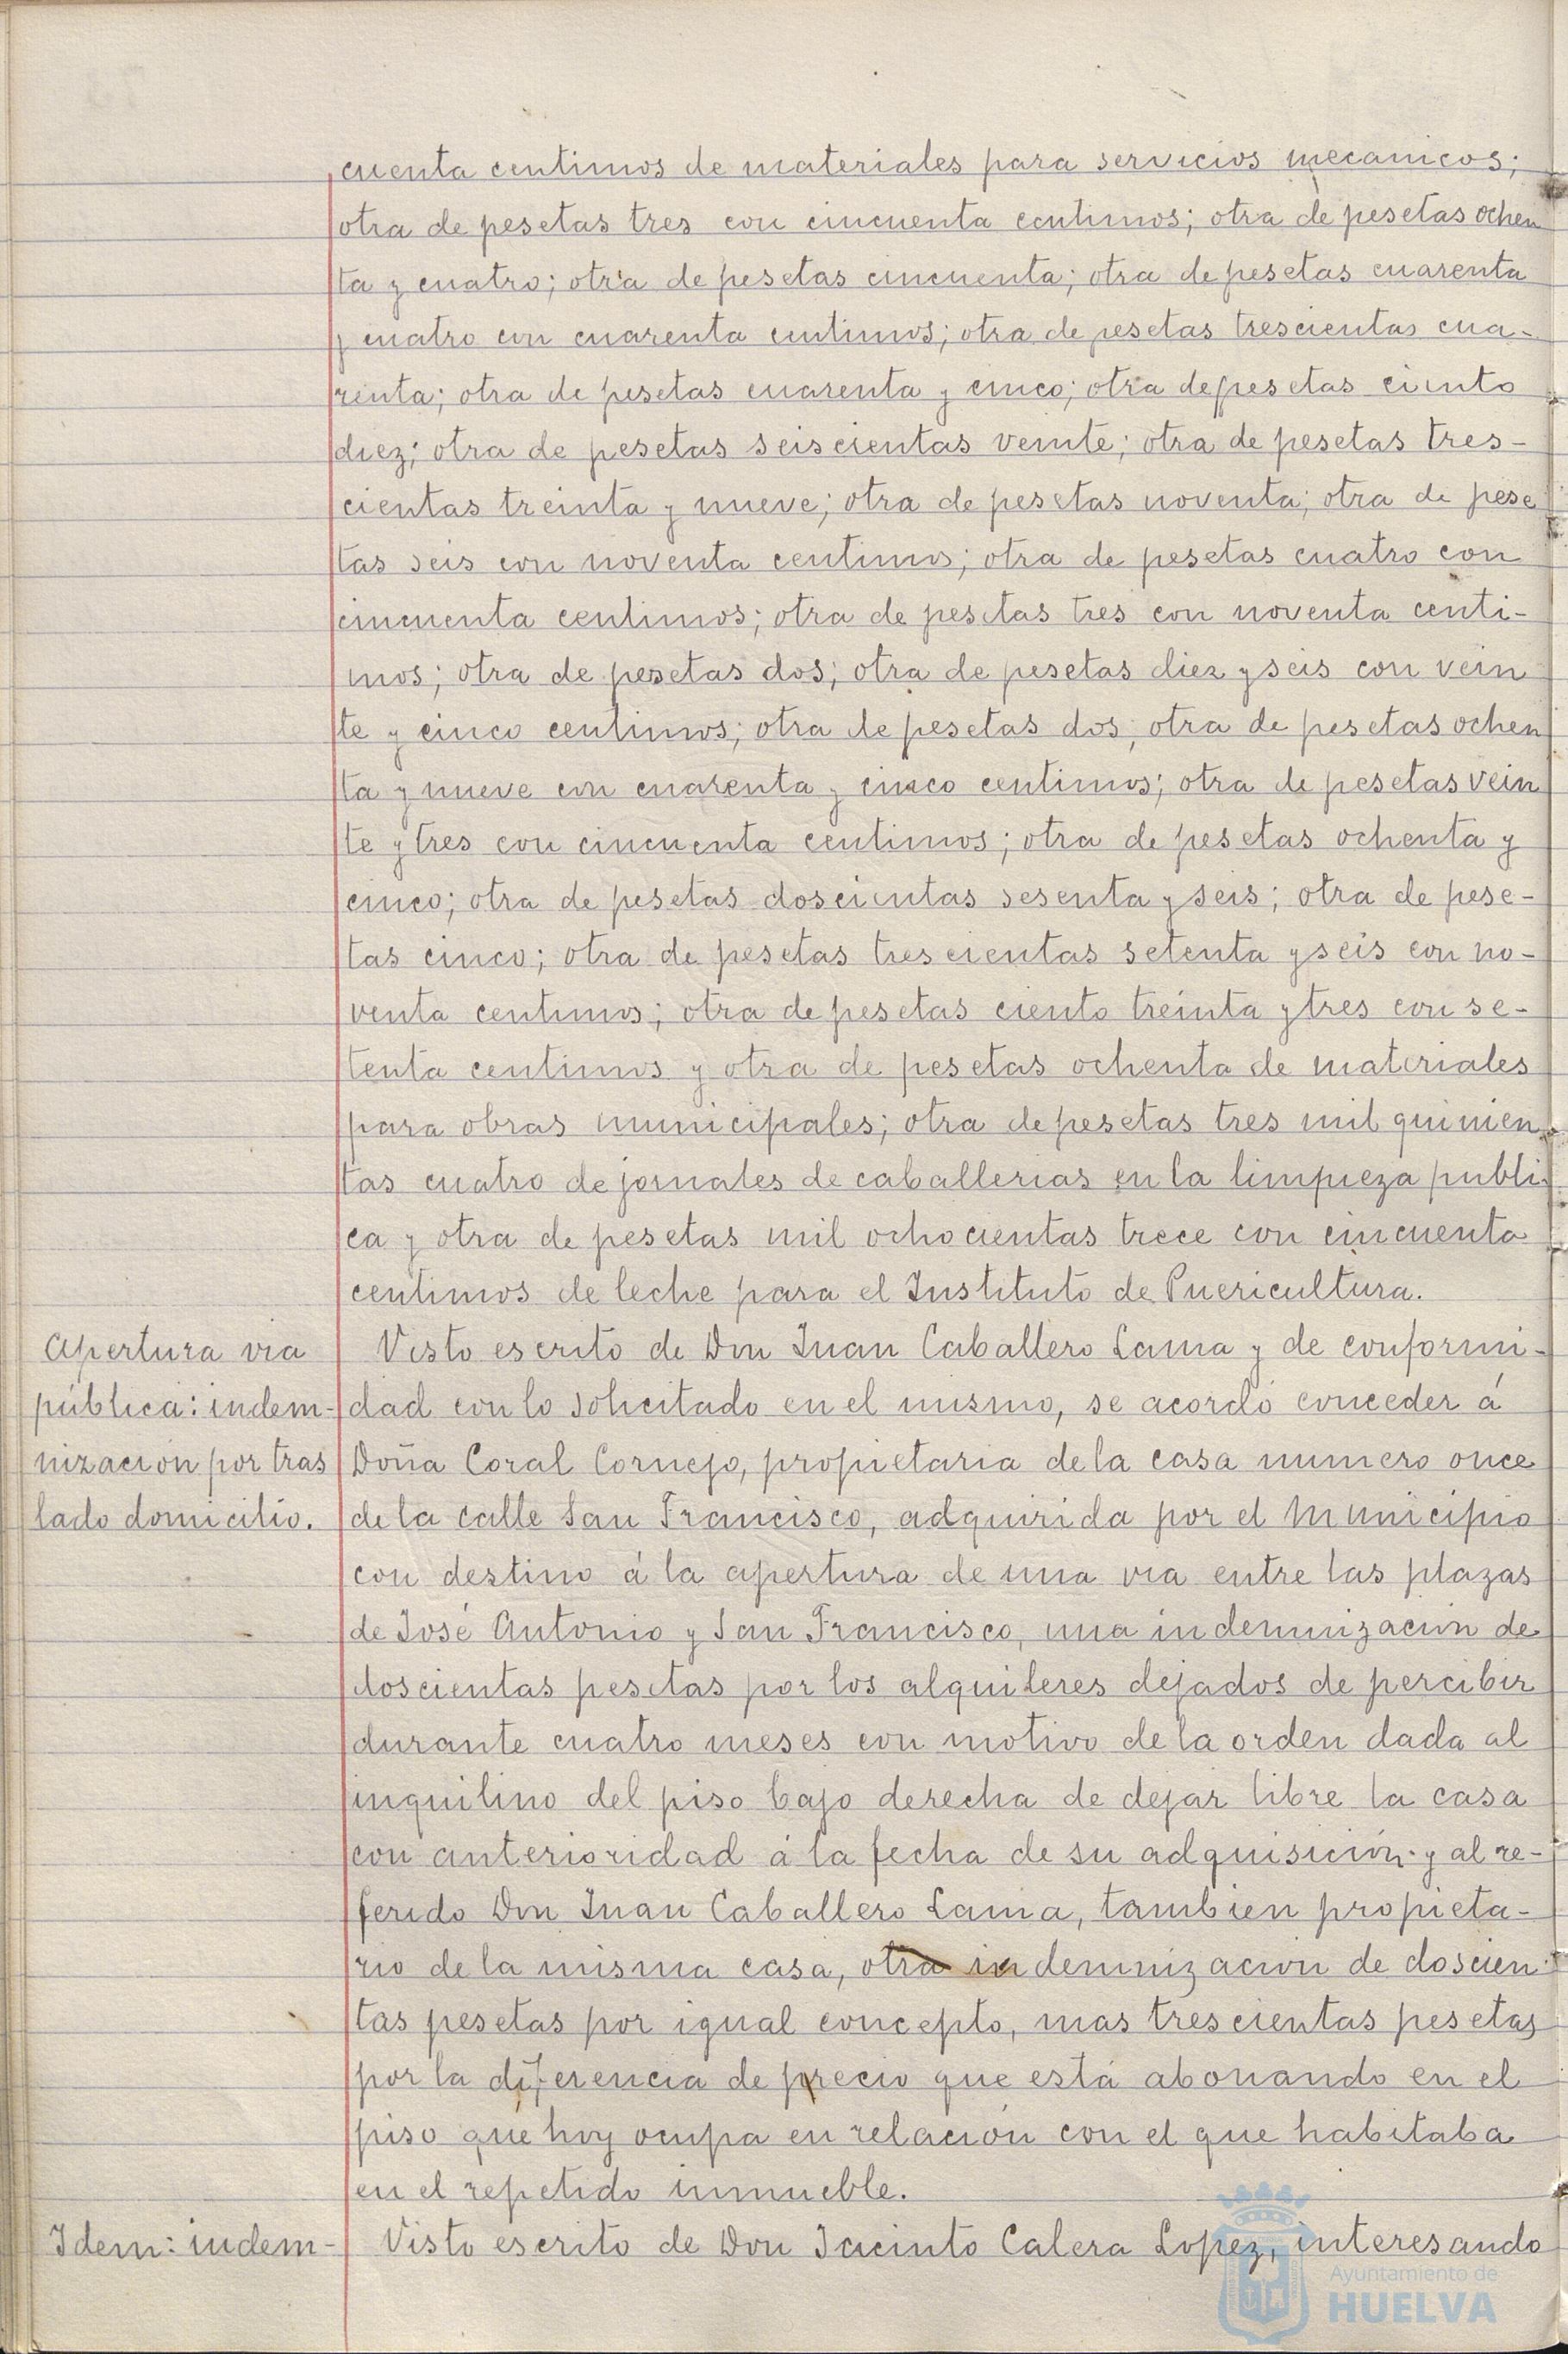 cuenta centimos de materiales para servicios mecanicos;
otra de pesetas tres con cincuenta centimos; otra de pesetas ochen
ta y cuatro; otra de pesetas cincuenta; otra de pesetas cuarenta
y cuatro con cuarenta centimos; otra de pesetas trescientas cua-
renta; otra de pesetas cuarenta y cinco; otra de pesetas ciento
diez; otra de pesetas seiscientas veinte; otra de pesetas tres-
cientas treinta y nueve; otra de pesetas noventa; otra de pese
tas seis con noventa centimos; otra de pesetas cuatro con
cincuenta centimos; otra de pesetas tres con noventa centi-
mos; otra de pesetas dos; otra de pesetas diez y seis con vein
te y cinco centimos; otra de pesetas dos; otra de pesetas ochen
ta y nueve con cuarenta y cinco centimos; otra de pesetas vein
te y tres con cincuenta centimos; otra de pesetas ochenta y
cinco; otra de pesetas doscientas sesenta y seis; otra de pese-
tas cinco; otra de pesetas trescientas setenta y seis con no-
venta centimos; otra de pesetas ciento treinta y tres con se-
tenta centimos y otra de pesetas ochenta de materiales
para obras municipales; otra de pesetas tres mil quinien
tas cuatro de jornales de caballerias en la limpieza publi-
ca y otra de pesetas mil ochocientas trece con cincuenta
centimos de leche para el Instituto de Puericultura.
Apertura via
pública: indem-
nización por tras
lado domicilio.
Visto escrito de Don Juan Caballero Lama y de conformi-
dad con lo solicitado en el mismo, se acordó conceder á
Doña Coral Cornejo, propietaria de la casa numero once
de la calle San Francisco, adquirida por el Municipio
con destino á la apertura de una via entre las plazas
de José Antonio y San Francisco, una indemnización de
doscientas pesetas por los alquileres dejados de percibir
durante cuatro meses con motivo de la orden dada al
inquilino del piso bajo derecha de dejar libre la casa
con anterioridad á la fecha de su adquisición y al re-
ferido Don Juan Caballero Lama, tambien propieta-
rio de la misma casa, otra indemnización de doscien-
tas pesetas por igual concepto, mas trescientas pesetas
por la diferencia de precio que está abonando en el
piso que hoy ocupa en relación con el que habitaba
en el repetido inmueble.
Idem: indem-
Visto escrito de Don Jacinto Calera Lopez, interesando
Ayuntamiento de
HUELVA